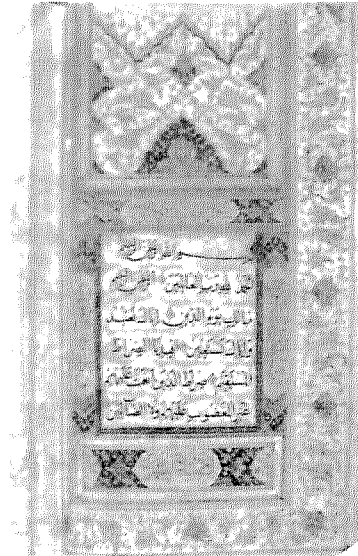 بسم الله الرحمن الرحيم
الحمد لله رب العالمين الرحمن الرحيم
مالك يوم الدين إياك نعبد
وإياك نستعين اهدنا الصراط
المستقيم صراط الذين أنعمت عليهم
غير المغضوب عليهم ولا الضالين